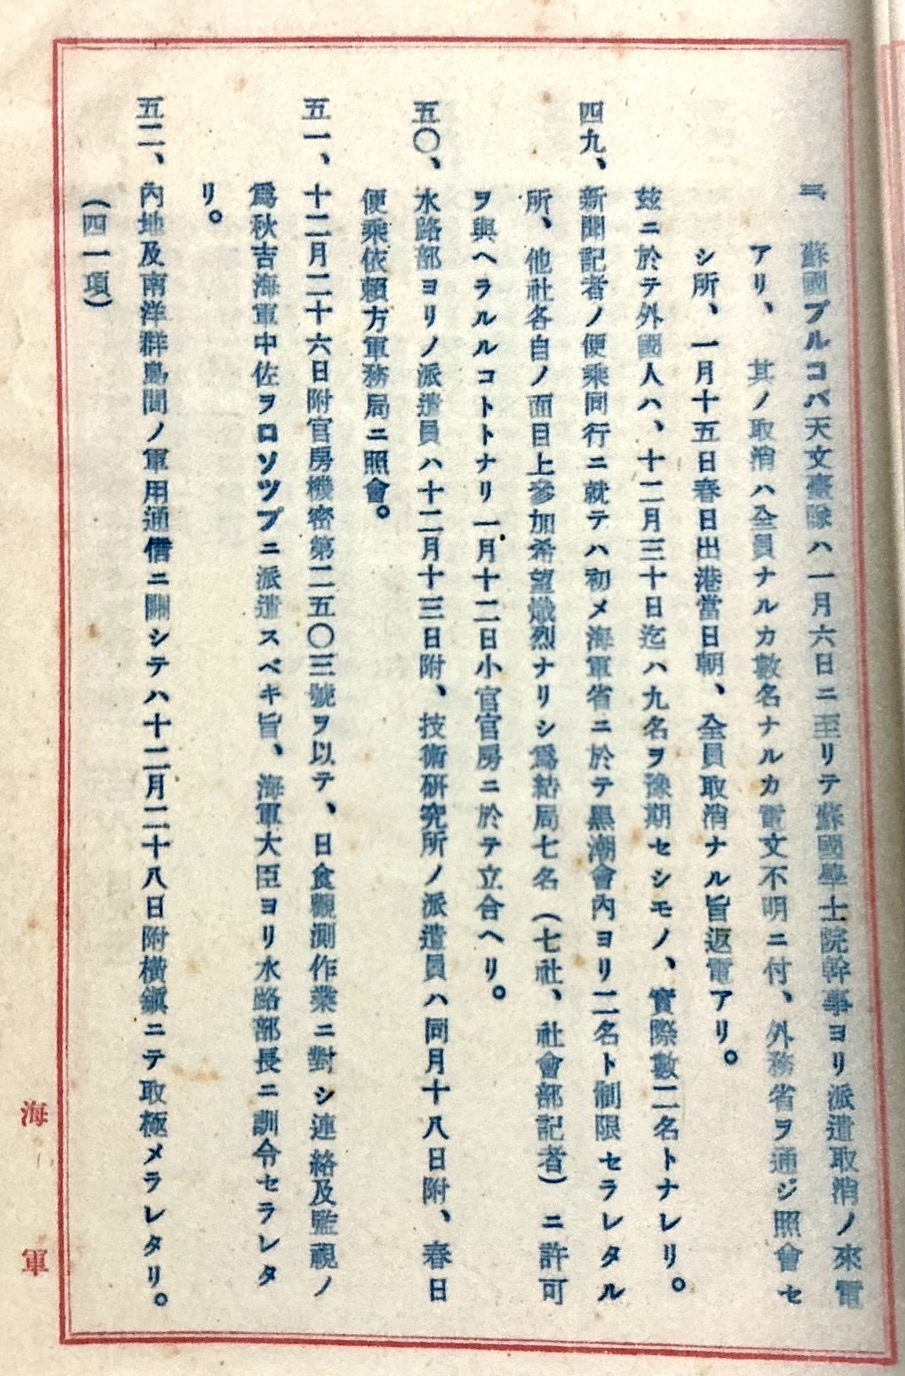 三、蘇國プルコバ天文臺隊ハ一月六日ニ至リテ蘇國學士院幹事ヨリ派遣取消ノ來電
アリ、其ノ取消ハ全員ナルカ數名ナルカ電文不明ニ付、外務省ヲ通ジ照會セ
シ所、一月十五日春日出港當日朝、全員取消ナル旨返電アリ。
玆ニ於テ外國人ハ、十二月三十日迄ハ九名ヲ豫期セシモノ、實際數二名トナレリ。
四九、新聞記者ノ便乘同行ニ就テハ初メ海軍省ニ於テ黑潮會內ヨリ二名ト制限セラレタル
所、他社各自ノ面目上參加希望熾烈ナリシ爲結局七名(七社、社會部記者)ニ許可
ヲ與ヘラルルコトトナリ一月十二日小官官房ニ於テ立合ヘリ。
五〇、水路部ヨリノ派遣員ハ十二月十三日附、技術硏究所ノ派遣員ハ同月十八日附、春日
便乘依賴方軍務局ニ照會。
五一、十二月二十六日附官房機密第二五〇三號ヲ以テ、日食觀測作業ニ對シ連絡及監視ノ
爲秋吉海軍中佐ヲロソツプニ派遣スベキ旨、海軍大臣ヨリ水路部長ニ訓令セラレタ
リ。
五二、內地及南洋群島間ノ軍用通信ニ關シテハ十二月二十八日附橫鎭ニテ取極メラレタリ。
(四一項)
海軍